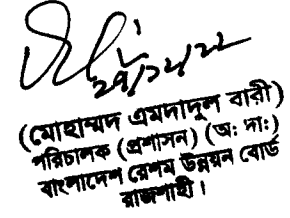 ২৭/১২/২২
(মোহাম্মদ এমদাদুল বারী)
পরিচালক (প্রশাসন) (অঃ দাঃ)
বাংলাদেশ রেশম উন্নয়ন বোর্ড
রাজশাহী।